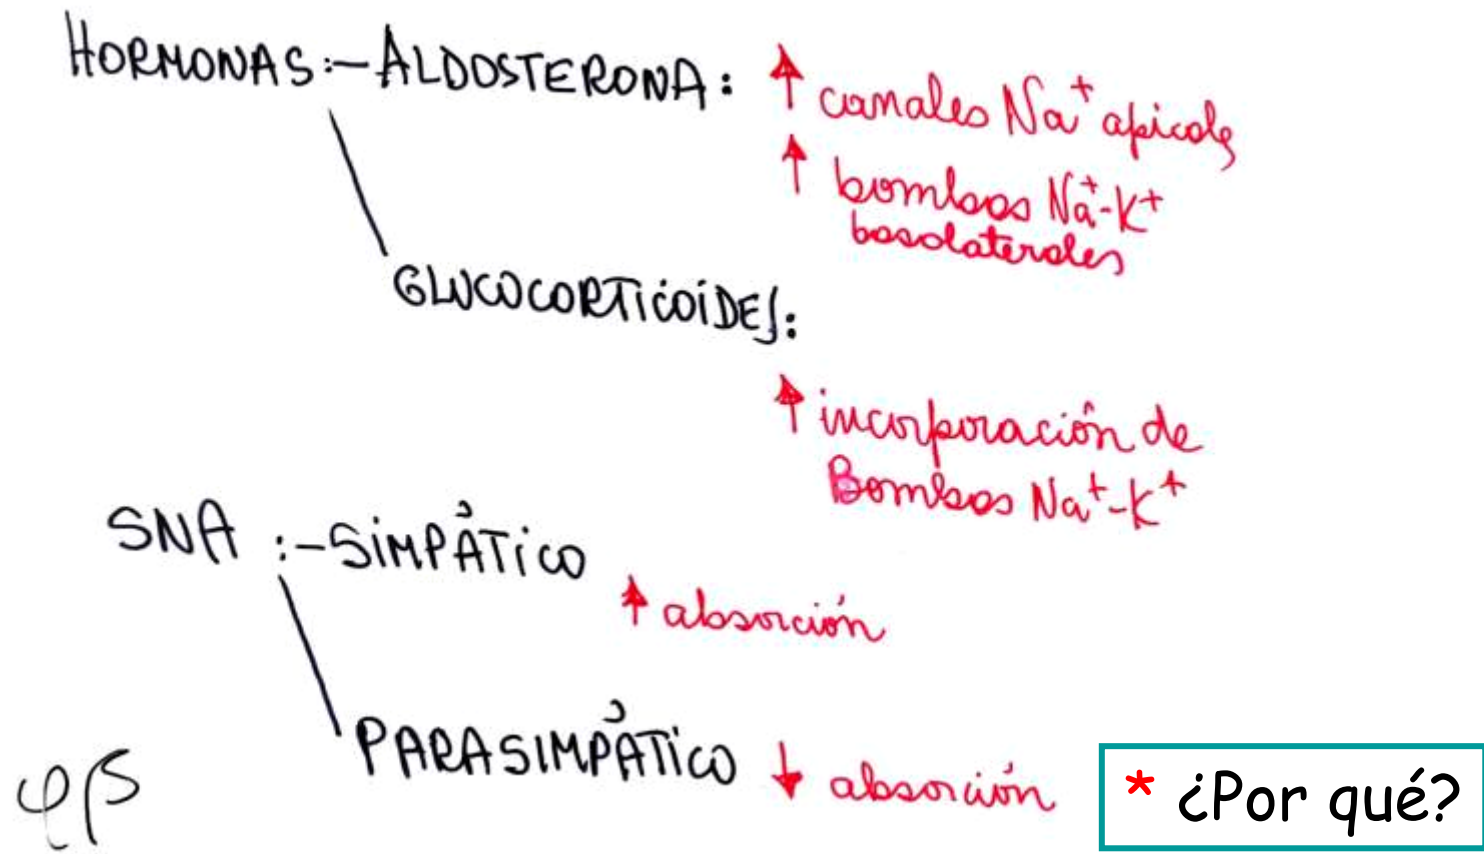 HORMONAS:- ALDOSTERONA: ↑ canales Na⁺ apicales
↑ bombas Na⁺-K⁺
basolaterales
GLUCOCORTICOIDES:
↑ incorporación de
Bombas Na⁺-K⁺
SNA :- SIMPÁTICO
↑ absorción
PARASIMPÁTICO ↓ absorción
* ¿Por qué?